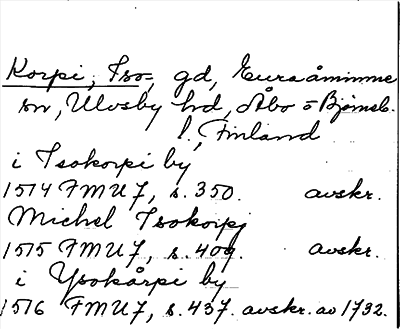 Korpi, Iso=, gd, Euraåminne
sn, Ulvsby hd, Åbo = Björneb.
l., Finland
i Isokorpi by
1514 FMU 7, s. 350. avskr.
Michel Isokorpj
1515 FMU 7, s. 409. avskr.
i Ysokårpi by
1516 FMU 7, s. 437. avskr. av 1732.